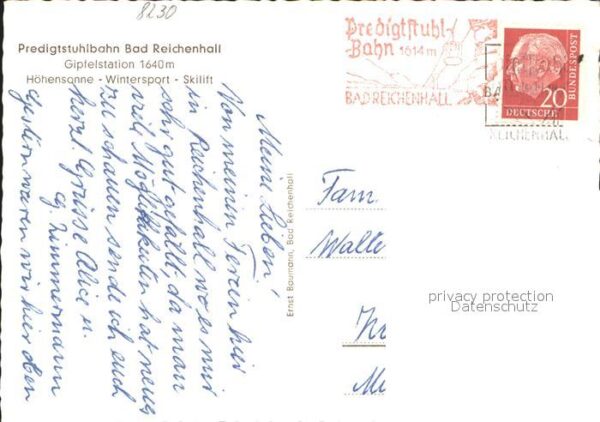 8230
Predigtstuhlbahn Bad Reichenhall
Gipfelstation 1640 m
Höhensonne - Wintersport - Skilift
Predigtstuhl-
Bahn 1614 m
BAD REICHENHALL
DEUTSCHE
BUNDESPOST
20
REICHENHALL
Meine Lieben!
Von meinen Ferien hier
in Reichenhall wo es mir
sehr gut gefällt, da man
viele Möglichkeiten hat neues
zu schauen sende ich euch
herzl. Grüsse Alice u.
Zimmermann
Gestern waren wir hier oben
Ernst Baumann, Bad Reichenhall
Fam.
Walte
privacy protection
Datenschutz